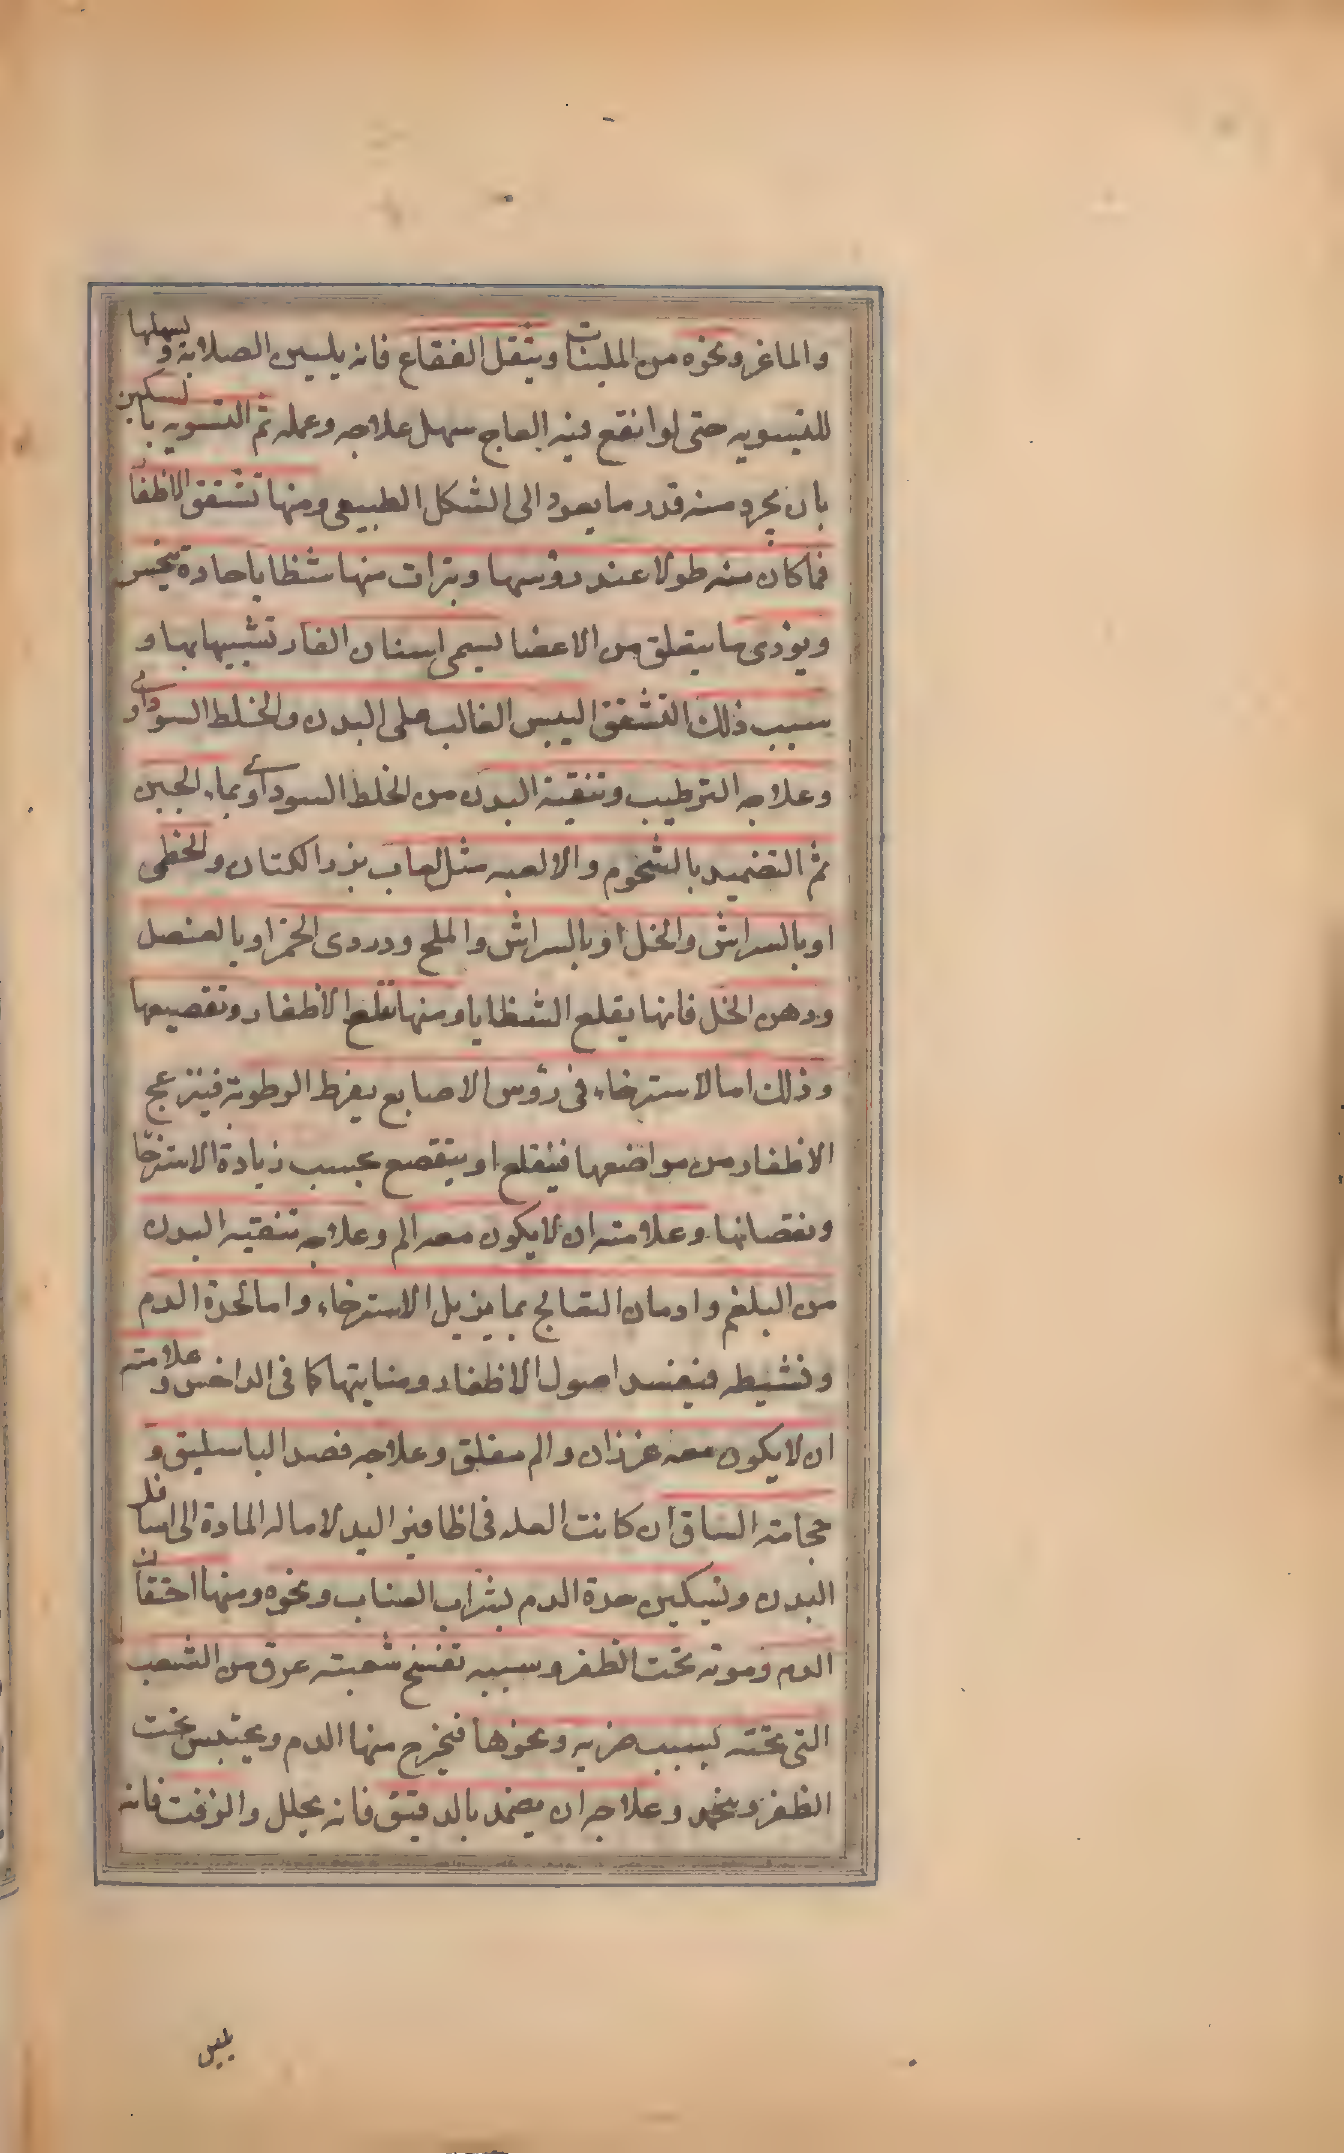 والماغر ونحوه من الملينات وبثقل الفقاع فانه يليين الصلابة ويسهلها
للتسويه حتى لو انقع فيه العاج سهل علاجه وعمله ثم التسويه بالسكين
بان يجرد منه قدر ما يعود الى الشكل الطبيعى ومنها تشقق الاظفا
فما كان منه طولا عند رؤسها وبترات منها شظايا حادة يخس
ويؤذى ما يتعلق من الاعضا يسمى اسنان الفار تشبيها بها و
سبب ذلك التشقق اليبس الغالب على البدن والخلط السوداوى
وعلاجه الترطيب وتنقية البدن من الخلط السوداوى بماء الجبن
ثم التضميد بالشحوم والالعبه مثل لعاب بزر الكتان والخطمى
او بالسراش والخل او بالسراش والملح ودردى الخمر او بالعنصل
ودهن الخل فانها يقلع الشظايا ومنها تقلع الاظفار وتقصيعها
وذلك اما لاسترخاء فى رؤس الاصابع بفرط الرطوبة فينزعج
الاظفار من مواضعها فينقلع او يتقصع بحسب زيادة الاسترخا
ونقصانها وعلامته ان لا يكون معه الم وعلاجه تنقيه البدن
من البلغم وادمان التعالج بما يزيل الاسترخاء واما لحدة الدم
ونشيطه فيفسد اصول الاظفار ومنابتها كما فى الداخس وعلامته
ان لا يكون معه غرزان والم مقلق وعلاجه فصد الباسليق و
حجامته الساق ان كانت العله فى اظافير اليد لاماله المادة الى اسافل
البدن وتسكين حدة الدم بشراب العناب ونحوه ومنها اختقان
الدم وموته تحت الظفر وسببه تفسخ شعبته عرق من الشعب
التى تحته بسبب ضربه ونحوها فيخرج منها الدم ويحتبس تحت
الظفر ويخمد وعلاجه ان يضمد بالدقيق فانه يحلل والزفت فانه
يليين